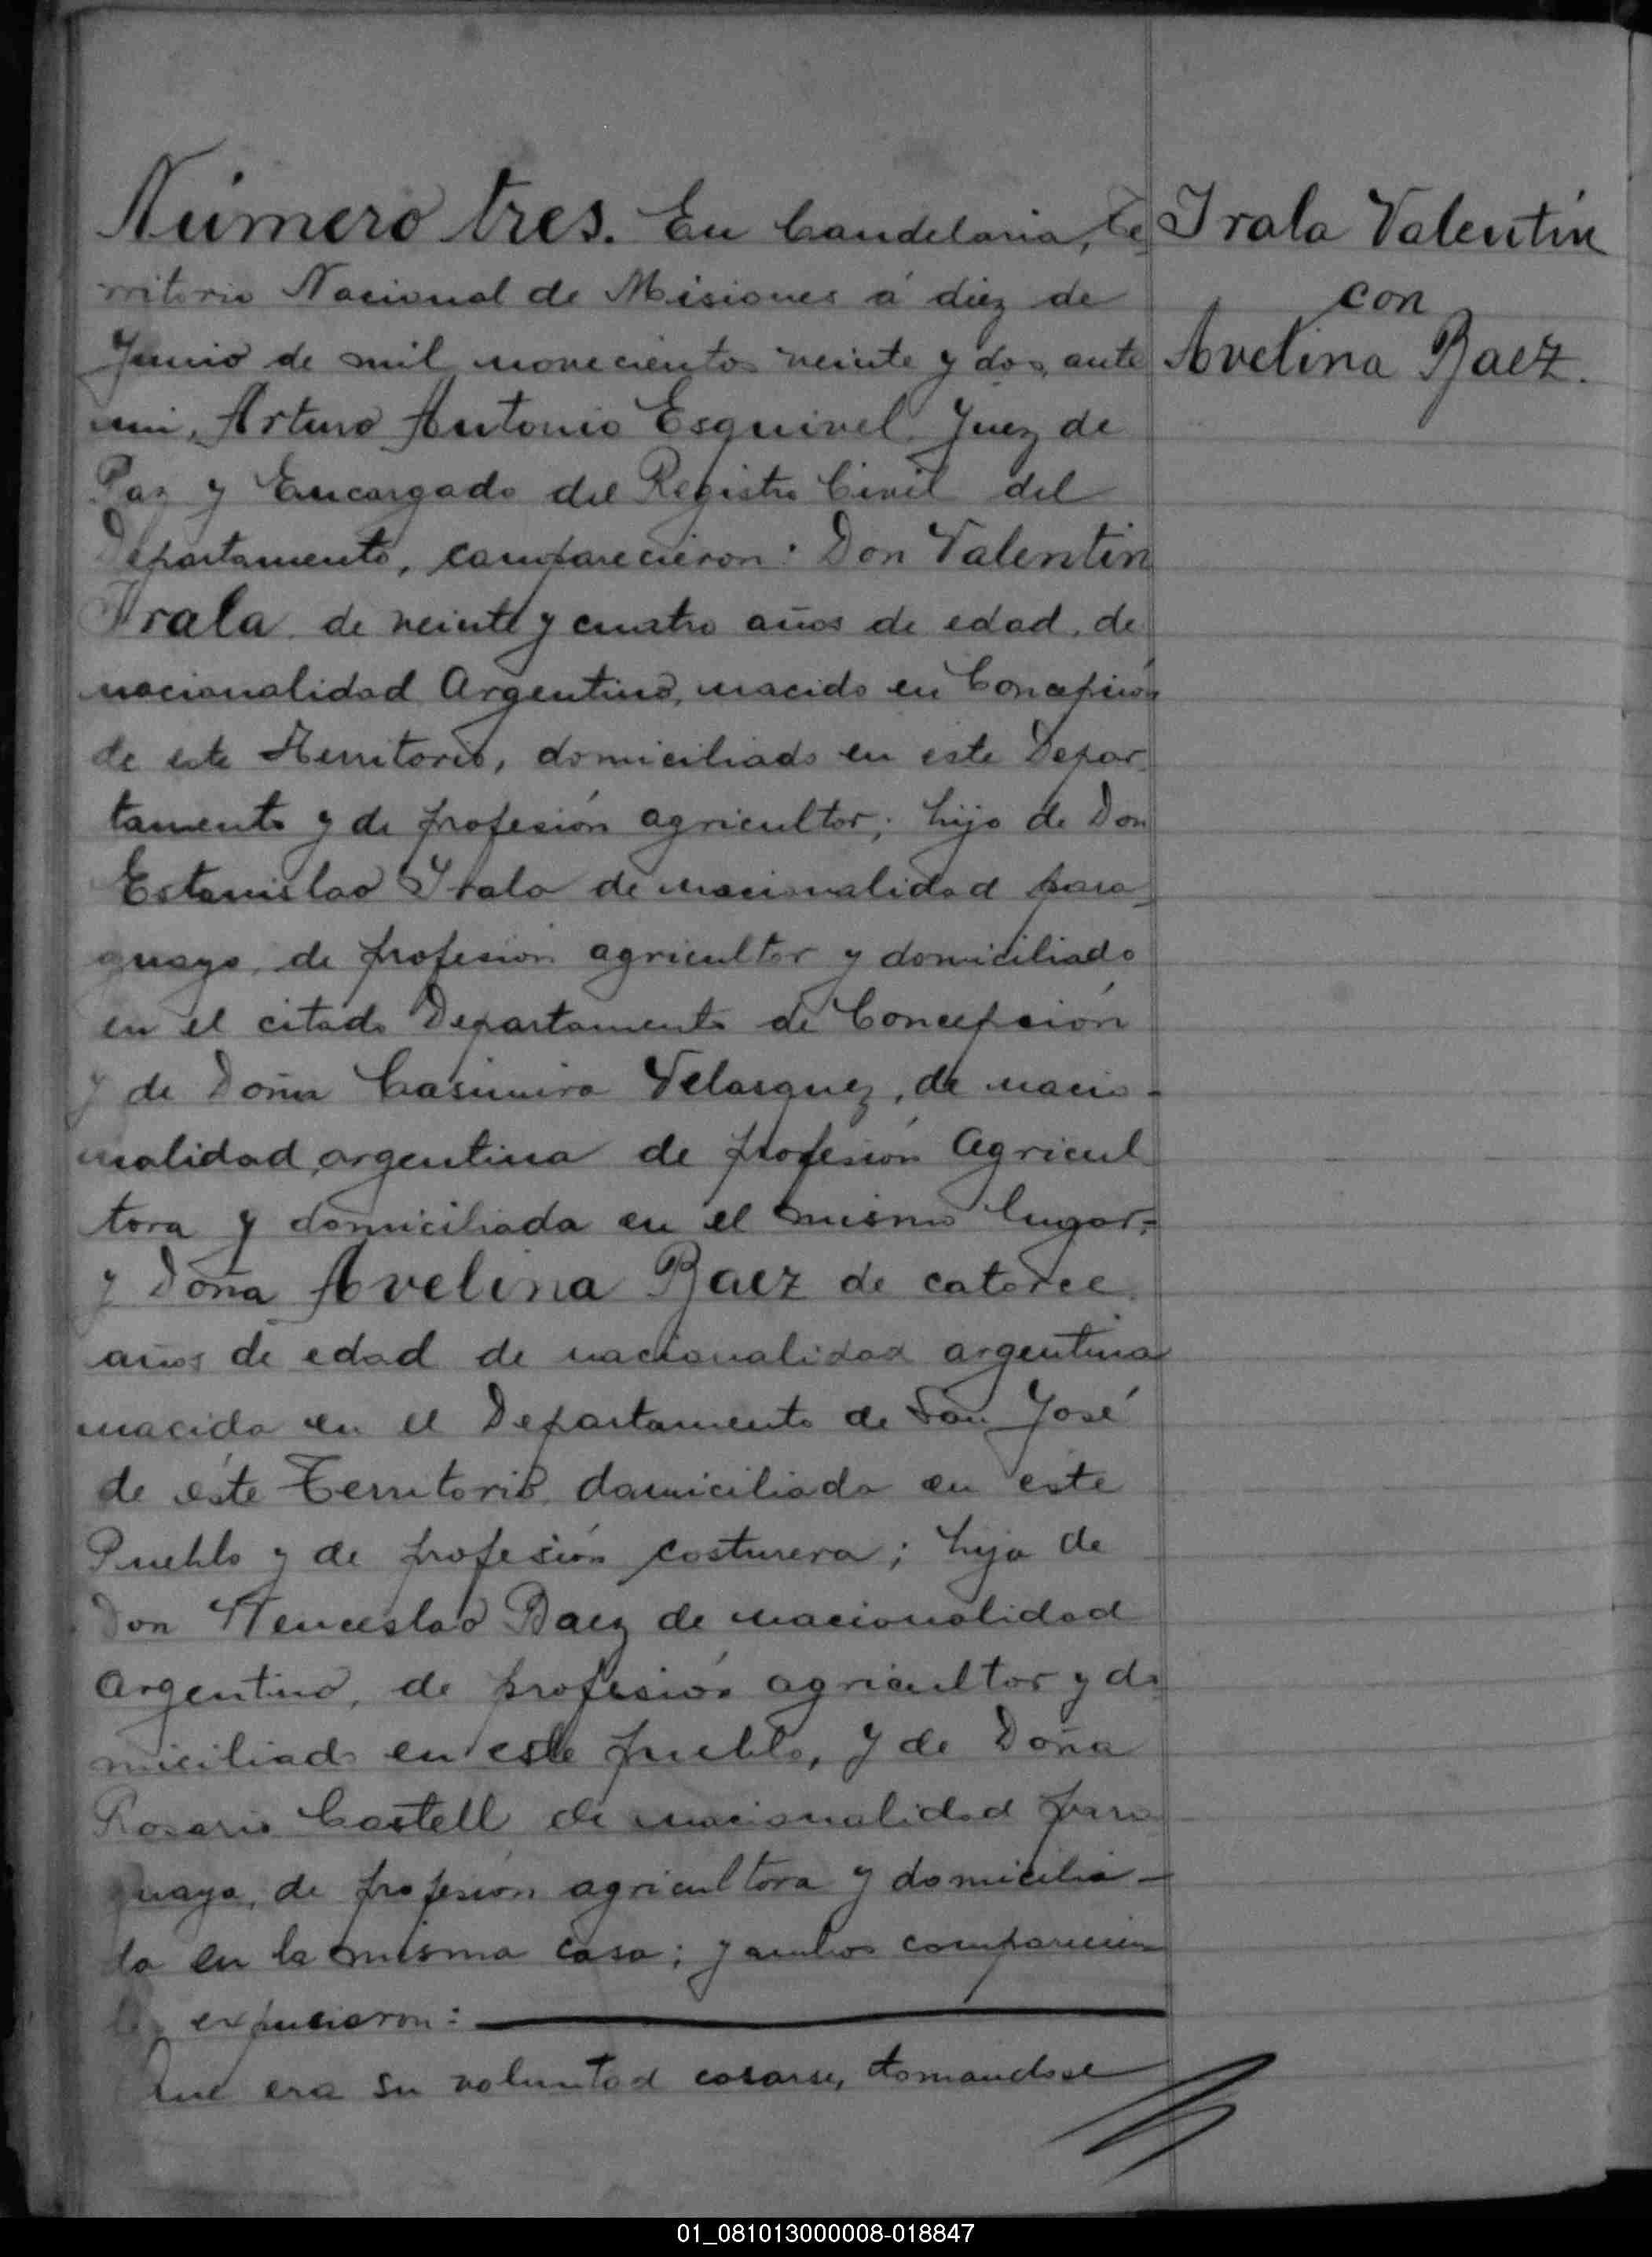 Número tres. En Candelaria, Te
rritorio Nacional de Misiones á diez de
Junio de mil novecientos veinte y dos, ante
mi, Arturo Antonio Esquivel Juez de
Paz y Encargado del Registro Civil del
Departamento, comparecieron: Don Valentin
Irala de veinte y cuatro años de edad, de
nacionalidad Argentino, nacido en Concepción
de este Territorio, domiciliado en este Depar-
tamento y de profesión agricultor; hijo de Don
Estanislao Irala de nacionalidad para-
guayo, de profesión agricultor y domiciliado
en el citado Departamento de Concepción
y de Doña Casimira Velasquez, de nacio-
nalidad argentina de profesión Agricul
tora y domiciliada en el mismo lugar-
y Doña Avelina Baez de catorce
años de edad de nacionalidad argentina
nacida en el Departamento de San José
de éste Territorio, domiciliada en este
Pueblo y de profesión costurera; hija de
Don Wenceslao Baez de nacionalidad
Argentino, de profesión agricultor y do
miciliado en este pueblo, y de Doña
Rosario Castell de nacionalidad para
guaya, de profesión agricultora y domicilia-
da en la misma casa; y ambos comparecien
tes expusieron:
Que era su voluntad casarse, tomandose
Irala Valentín
con
Avelina Baez.
01_081013000008-018847